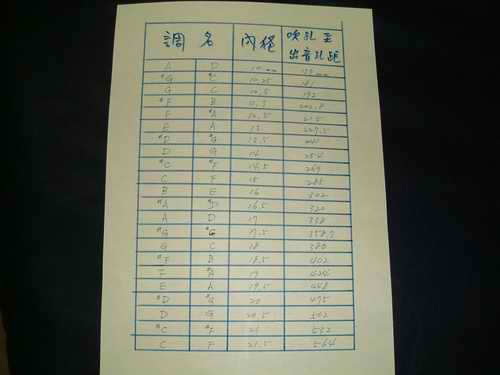 調 名 內徑 吹孔至出音孔距
A D 10 mm
#G #C 10.25 181
G C 10.5 192
#F B 202.8
F #A 215
E A 13 227.5
#D #G 13.5 241
D G 14 254
#C #F 14.5 269
C F 15 285
B E 16 302
#A #D 16.5 320
A D 17 338
#G #C 17.5 358.5
G C 18 380
#F B 18.5 402
F #A 19 424
E A 19.5 448
#D #G 20 475
D G 20.5 502
#C #F 21 532
C F 21.5 564